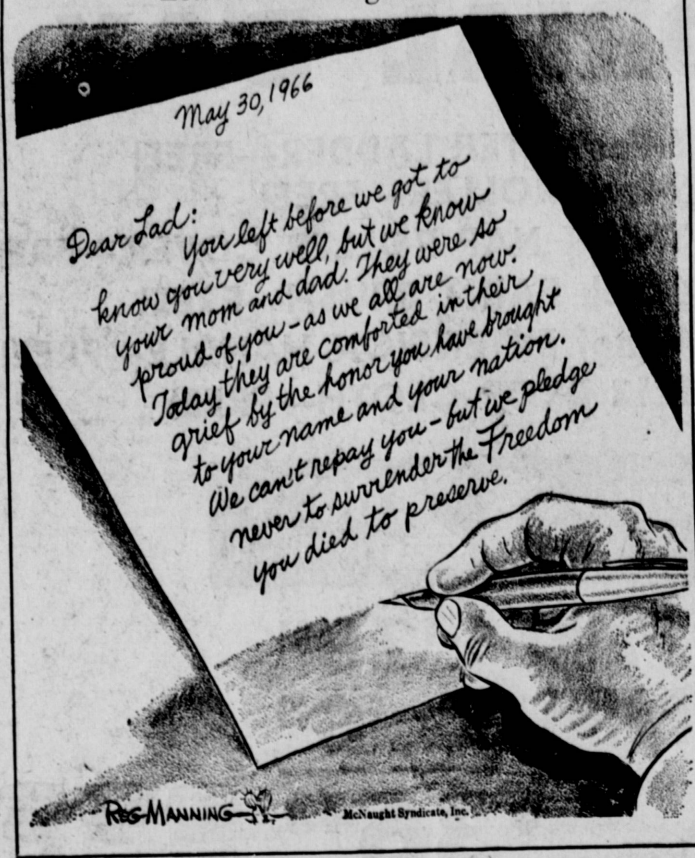 May 30, 1966
Dear Lad:
You left before we got to
know you very well, but we know
your mom and dad. They were so
proud of you - as we all are now.
Today they are comforted in their
grief by the honor you have brought
to your name and your nation.
We can't repay you - but we pledge
never to surrender the Freedom
you died to preserve.
REG MANNING
McNaught Syndicate, Inc.